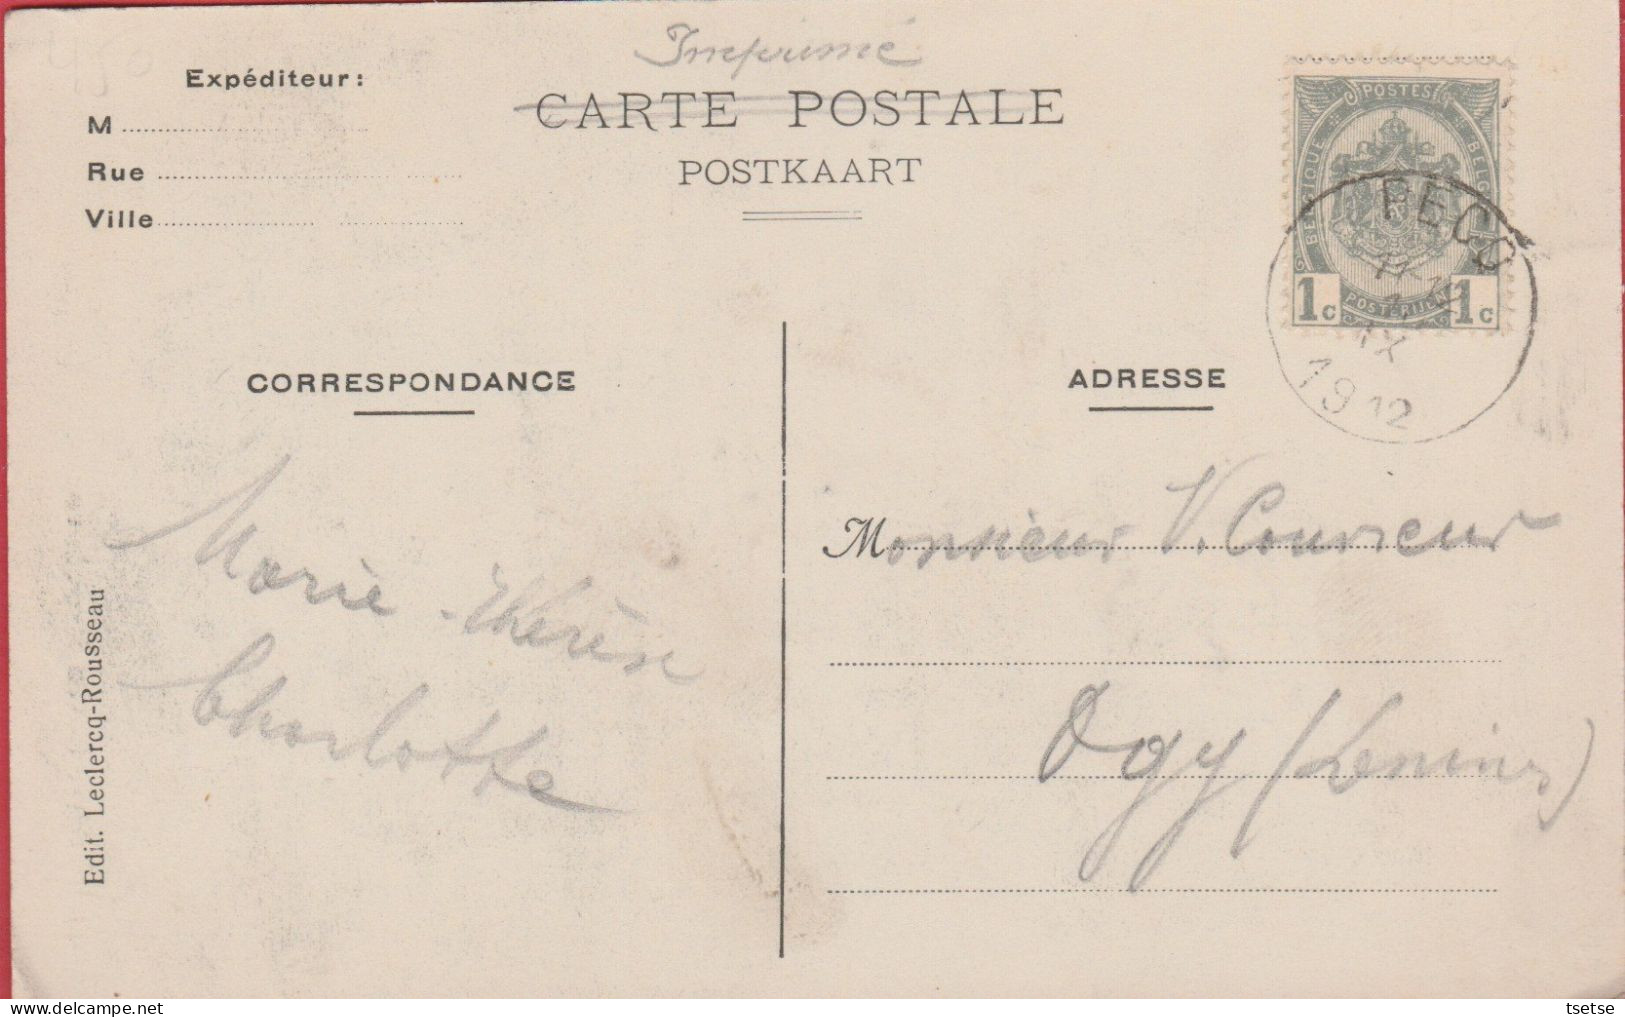 450
Imprimé
Expéditeur:
CARTE POSTALE
POSTKAART
M
Rue
Ville
POSTES
BELGIQUE BELGIË
POSTERIJEN
1c 1c
PECQ
IX
1912
CORRESPONDANCE
ADRESSE
Marie-Thérèse
Charlotte
Monsieur V. Couvreur
Ogy
Edit. Leclercq-Rousseau
tsetse